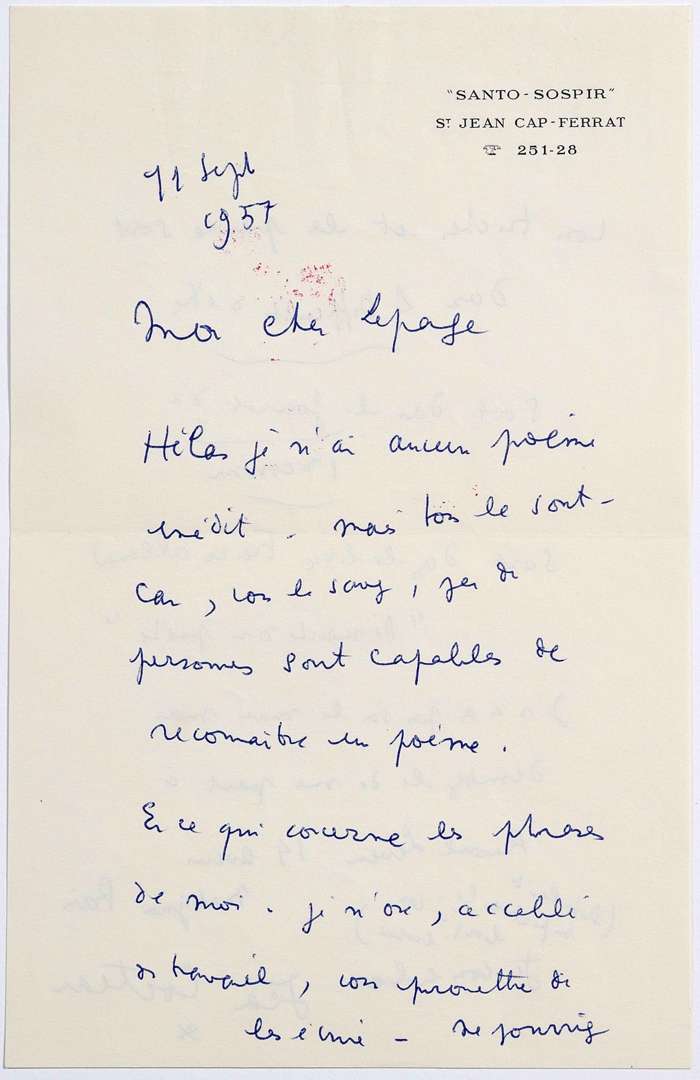 "SANTO-SOSPIR"
ST JEAN CAP-FERRAT
☏ 251-28
11 Sept
1957
Mon cher Lepage
Hélas je n'ai aucun poème
inédit - mais tous le sont -
Car, vous le savez, peu de
personnes sont capables de
reconnaître un poème.
En ce qui concerne les phrases
de moi. je n'ose, accablé
de travail, vous promettre de
les écrire -